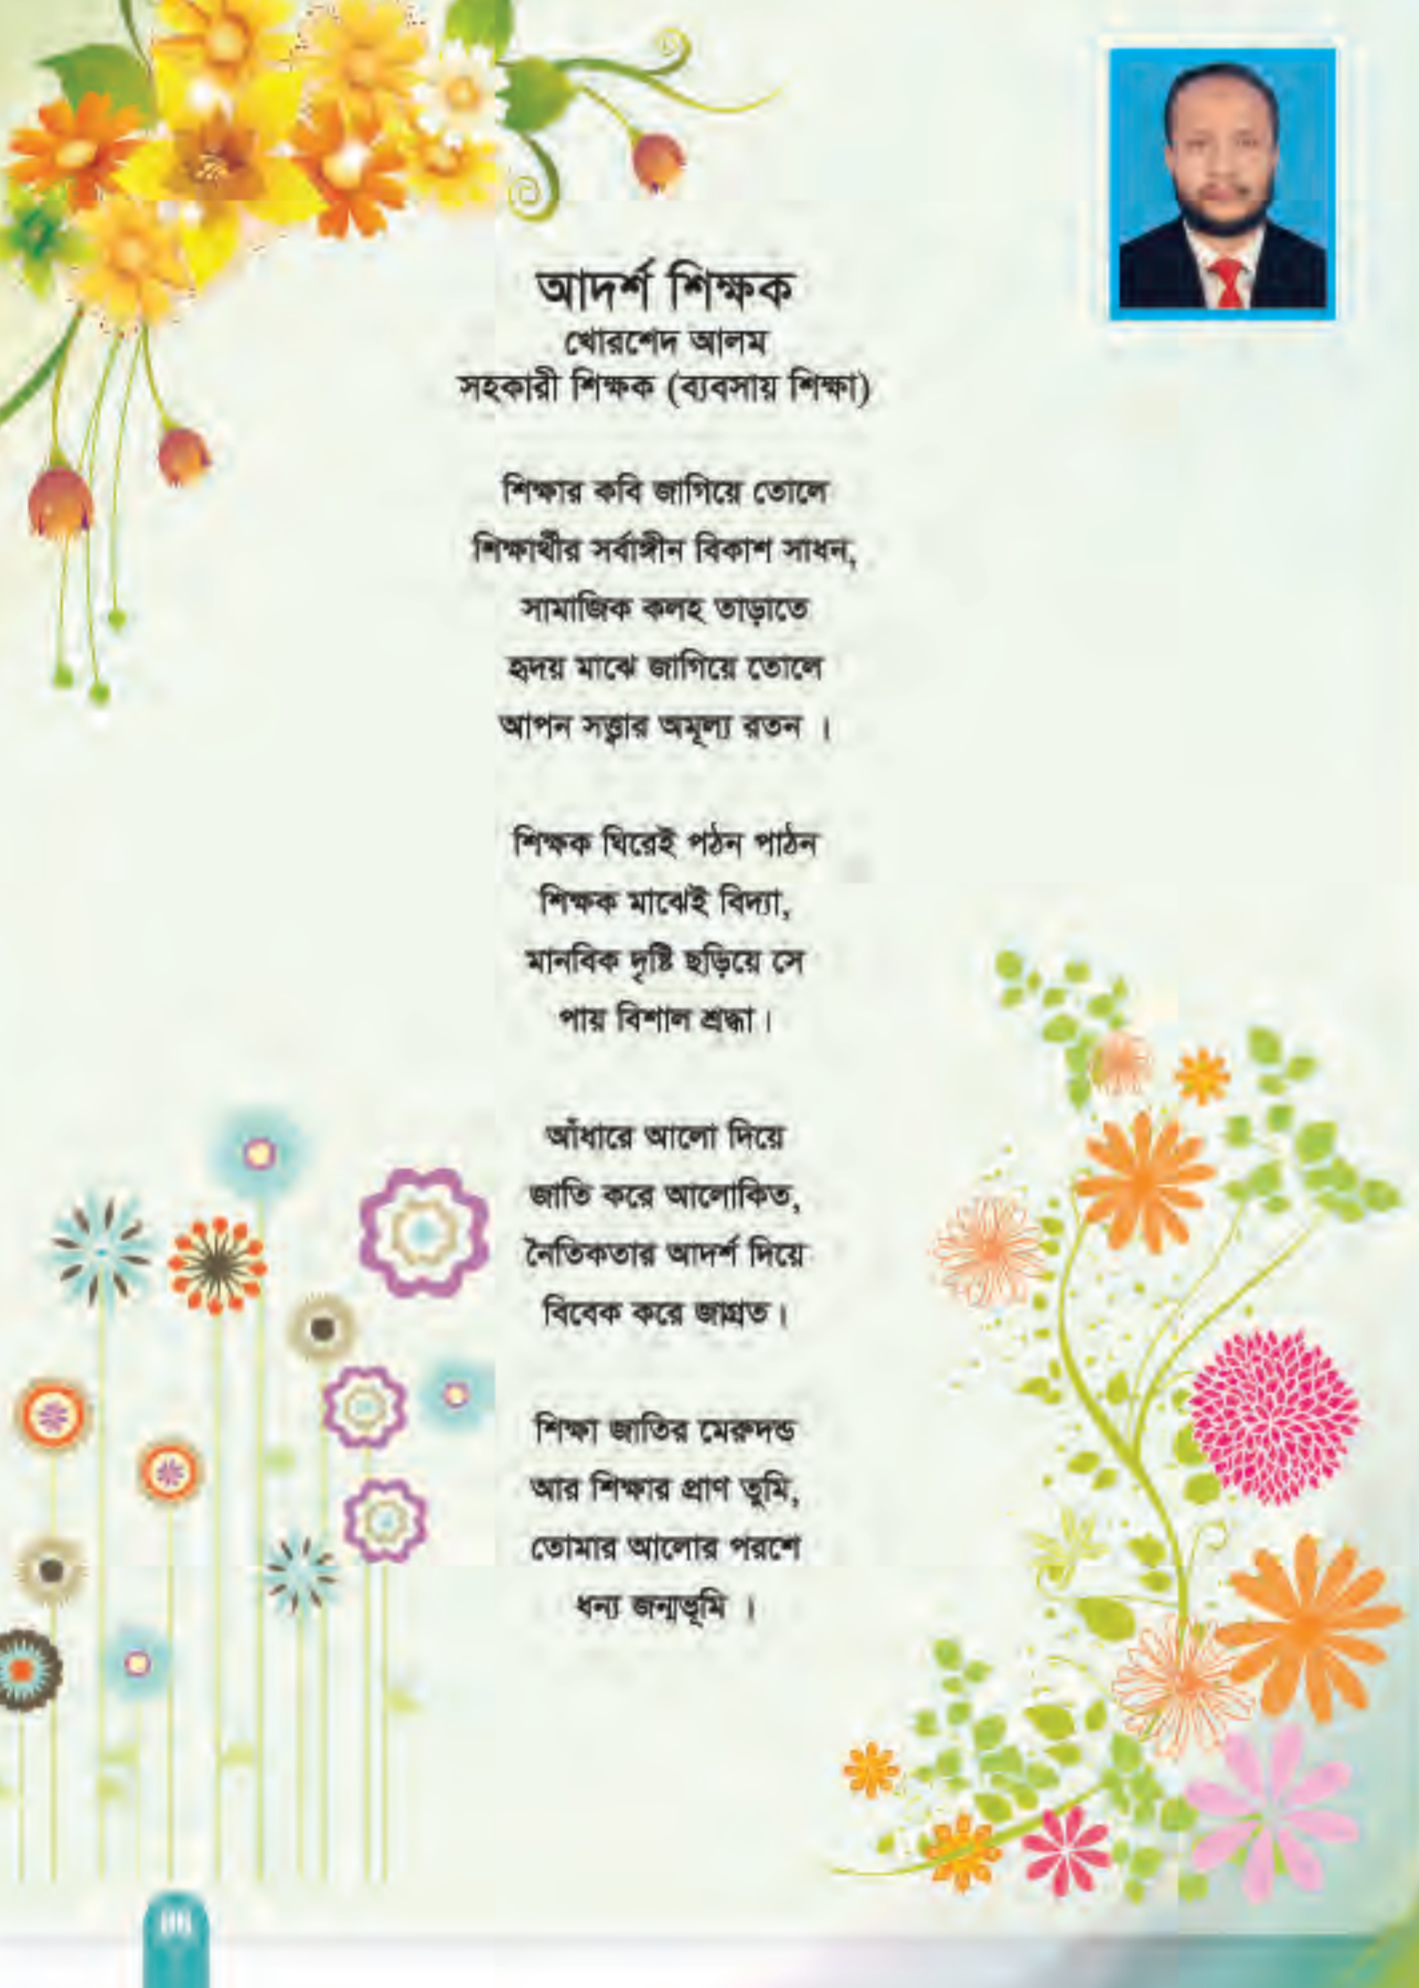 আদর্শ শিক্ষক
খোরশেদ আলম
সহকারী শিক্ষক (ব্যবসায় শিক্ষা)
শিক্ষার কবি জাগিয়ে তোলে
শিক্ষার্থীর সর্বাঙ্গীন বিকাশ সাধন,
সামাজিক কলহ তাড়াতে
হৃদয় মাঝে জাগিয়ে তোলে
আপন সত্ত্বার অমূল্য রতন ।
শিক্ষক ঘিরেই পঠন পাঠন
শিক্ষক মাঝেই বিদ্যা,
মানবিক দৃষ্টি ছড়িয়ে সে
পায় বিশাল শ্রদ্ধা।
আঁধারে আলো দিয়ে
জাতি করে আলোকিত,
নৈতিকতার আদর্শ দিয়ে
বিবেক করে জাগ্রত।
শিক্ষা জাতির মেরুদন্ড
আর শিক্ষার প্রাণ তুমি,
তোমার আলোর পরশে
ধন্য জন্মভূমি ।